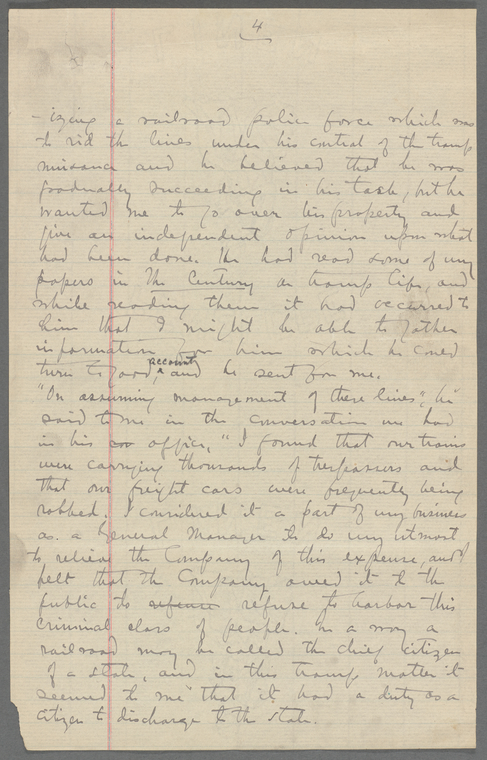 4
-izing a railroad police force which was
to rid the lines under his control of the tramp
nuisance and he believed that he was
gradually succeeding in his task; but he
wanted me to go over his property and
give an independent opinion upon what
had been done. He had read some of my
papers in The Century on tramp life, and
while reading them it had occurred to
him that I might be able to gather
information for him which he could
turn to good account, and he sent for me.
"On assuming management of these lines", he
said to me in the conversation we had
in his car office, "I found that our trains
were carrying thousands of trespassers and
that our freight cars were frequently being
robbed. I considered it a part of my business
as a General Manager to do my utmost
to relieve the Company of this expense, and I
felt that the Company owed it to the
public to refuse to harbor this
criminal class of people. In a way a
railroad may be called the chief citizen
of a state, and in this tramp matter it
seemed to me that it had a duty as a
citizen to discharge to the state.